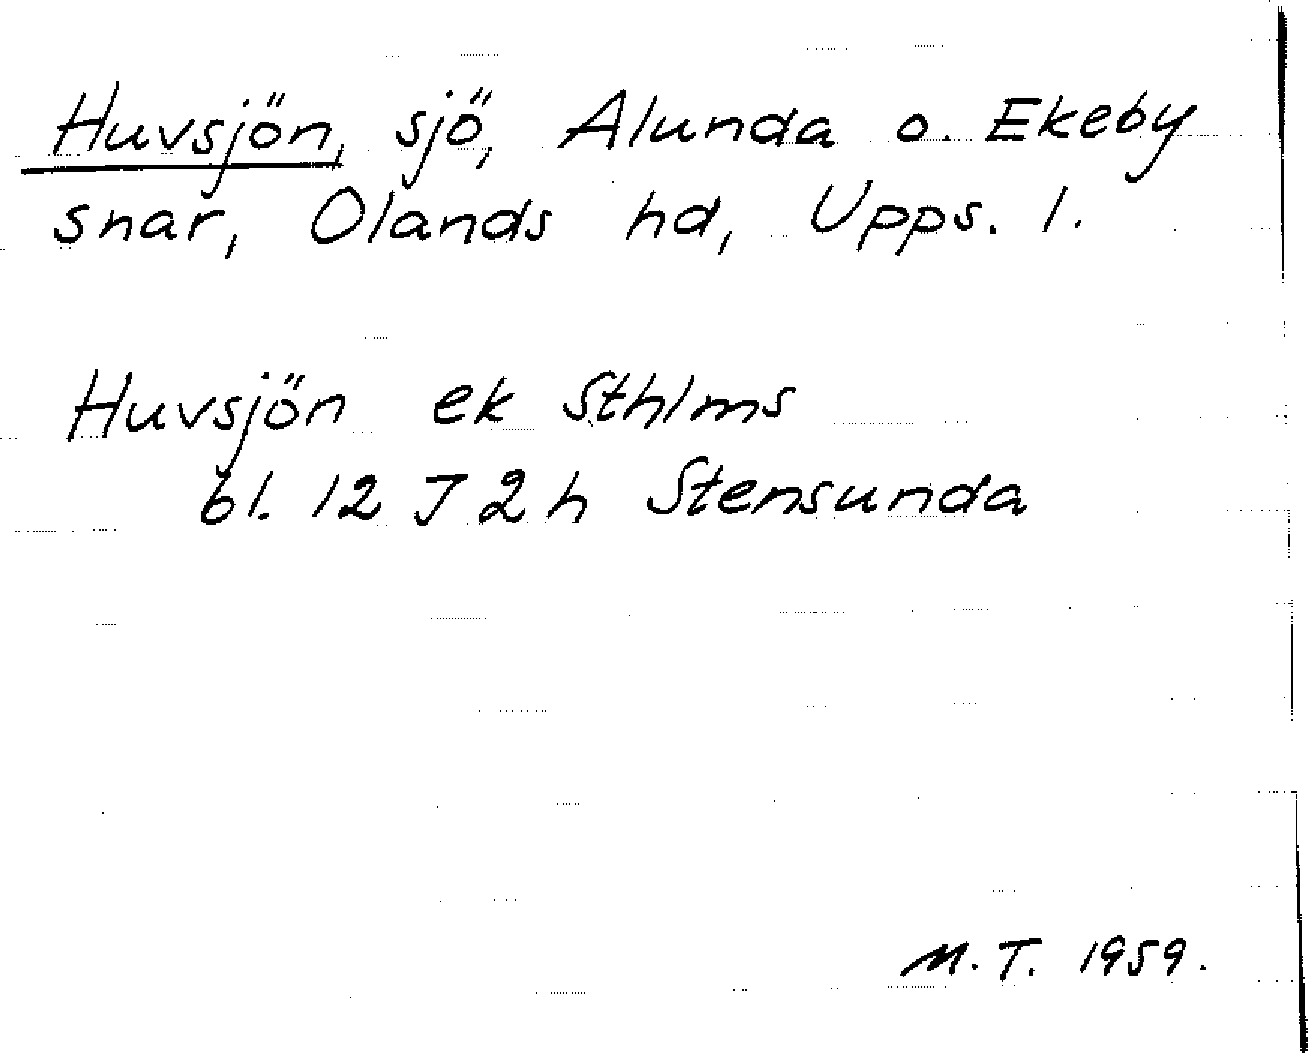 Huvsjön, sjö, Alunda o. Ekeby
snar, Olands hd, Upps. l.
Huvsjön ek Sthlms
bl. 12 J 2 h Stensunda
M.T. 1959.